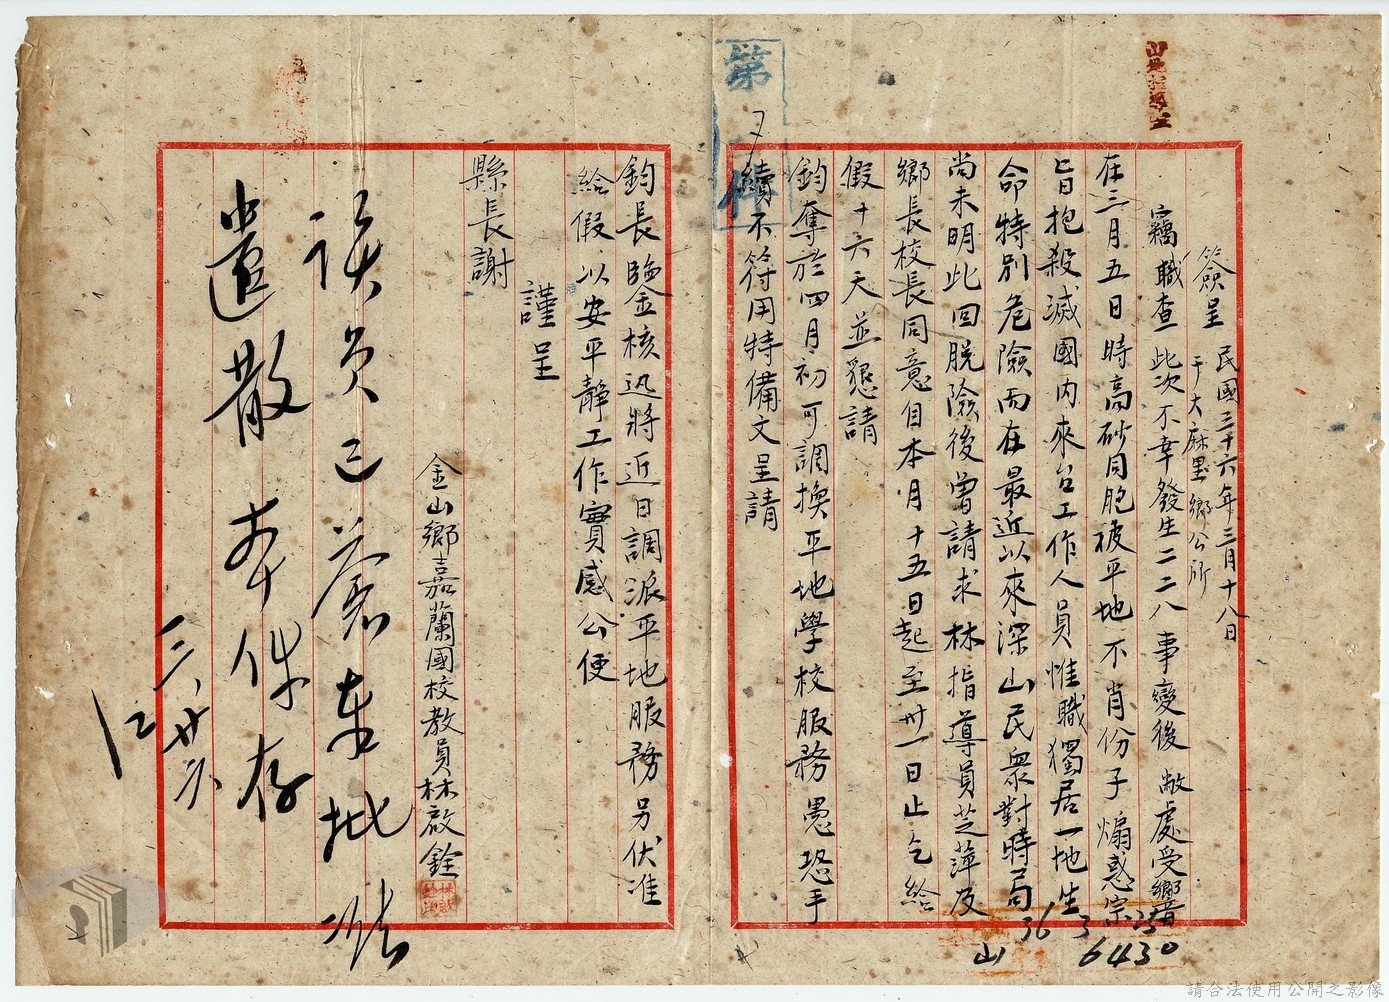 山地指導室
簽呈 民國三十六年三月十八日
于大麻里鄉公所
竊職查此次不幸發生二二八事變後敝處受響
在三月五日時高砂同胞被平地不肖份子煽惑宗
旨抱殺滅國内來台工作人員惟職獨居一地生
命特別危險而在最近以來深山民衆對時局
尚未明此回脫險後曾請求林指導員芝萍及
鄉長校長同意自本月十五日起至卅一日止乞給
假十六天並懇請
鈞奪於四月初可調換平地學校服務愚恐手
續不符用特備文呈請
第 件
鈞長鑒核迅將近日調派平地服務另伏准
給假以安平靜工作實感公便
謹呈
縣長謝
金山鄉嘉蘭國校教員林啟銓
該員已簽奉批准
遣散本件存
三、廿六
36 3 25
6430
山
請合法使用公開之影像